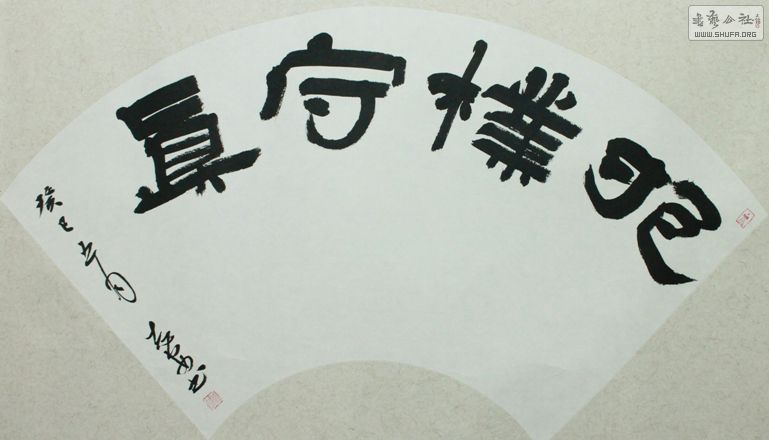 抱樸守真
癸巳
書藝公社
WWW.SHUFA.ORG